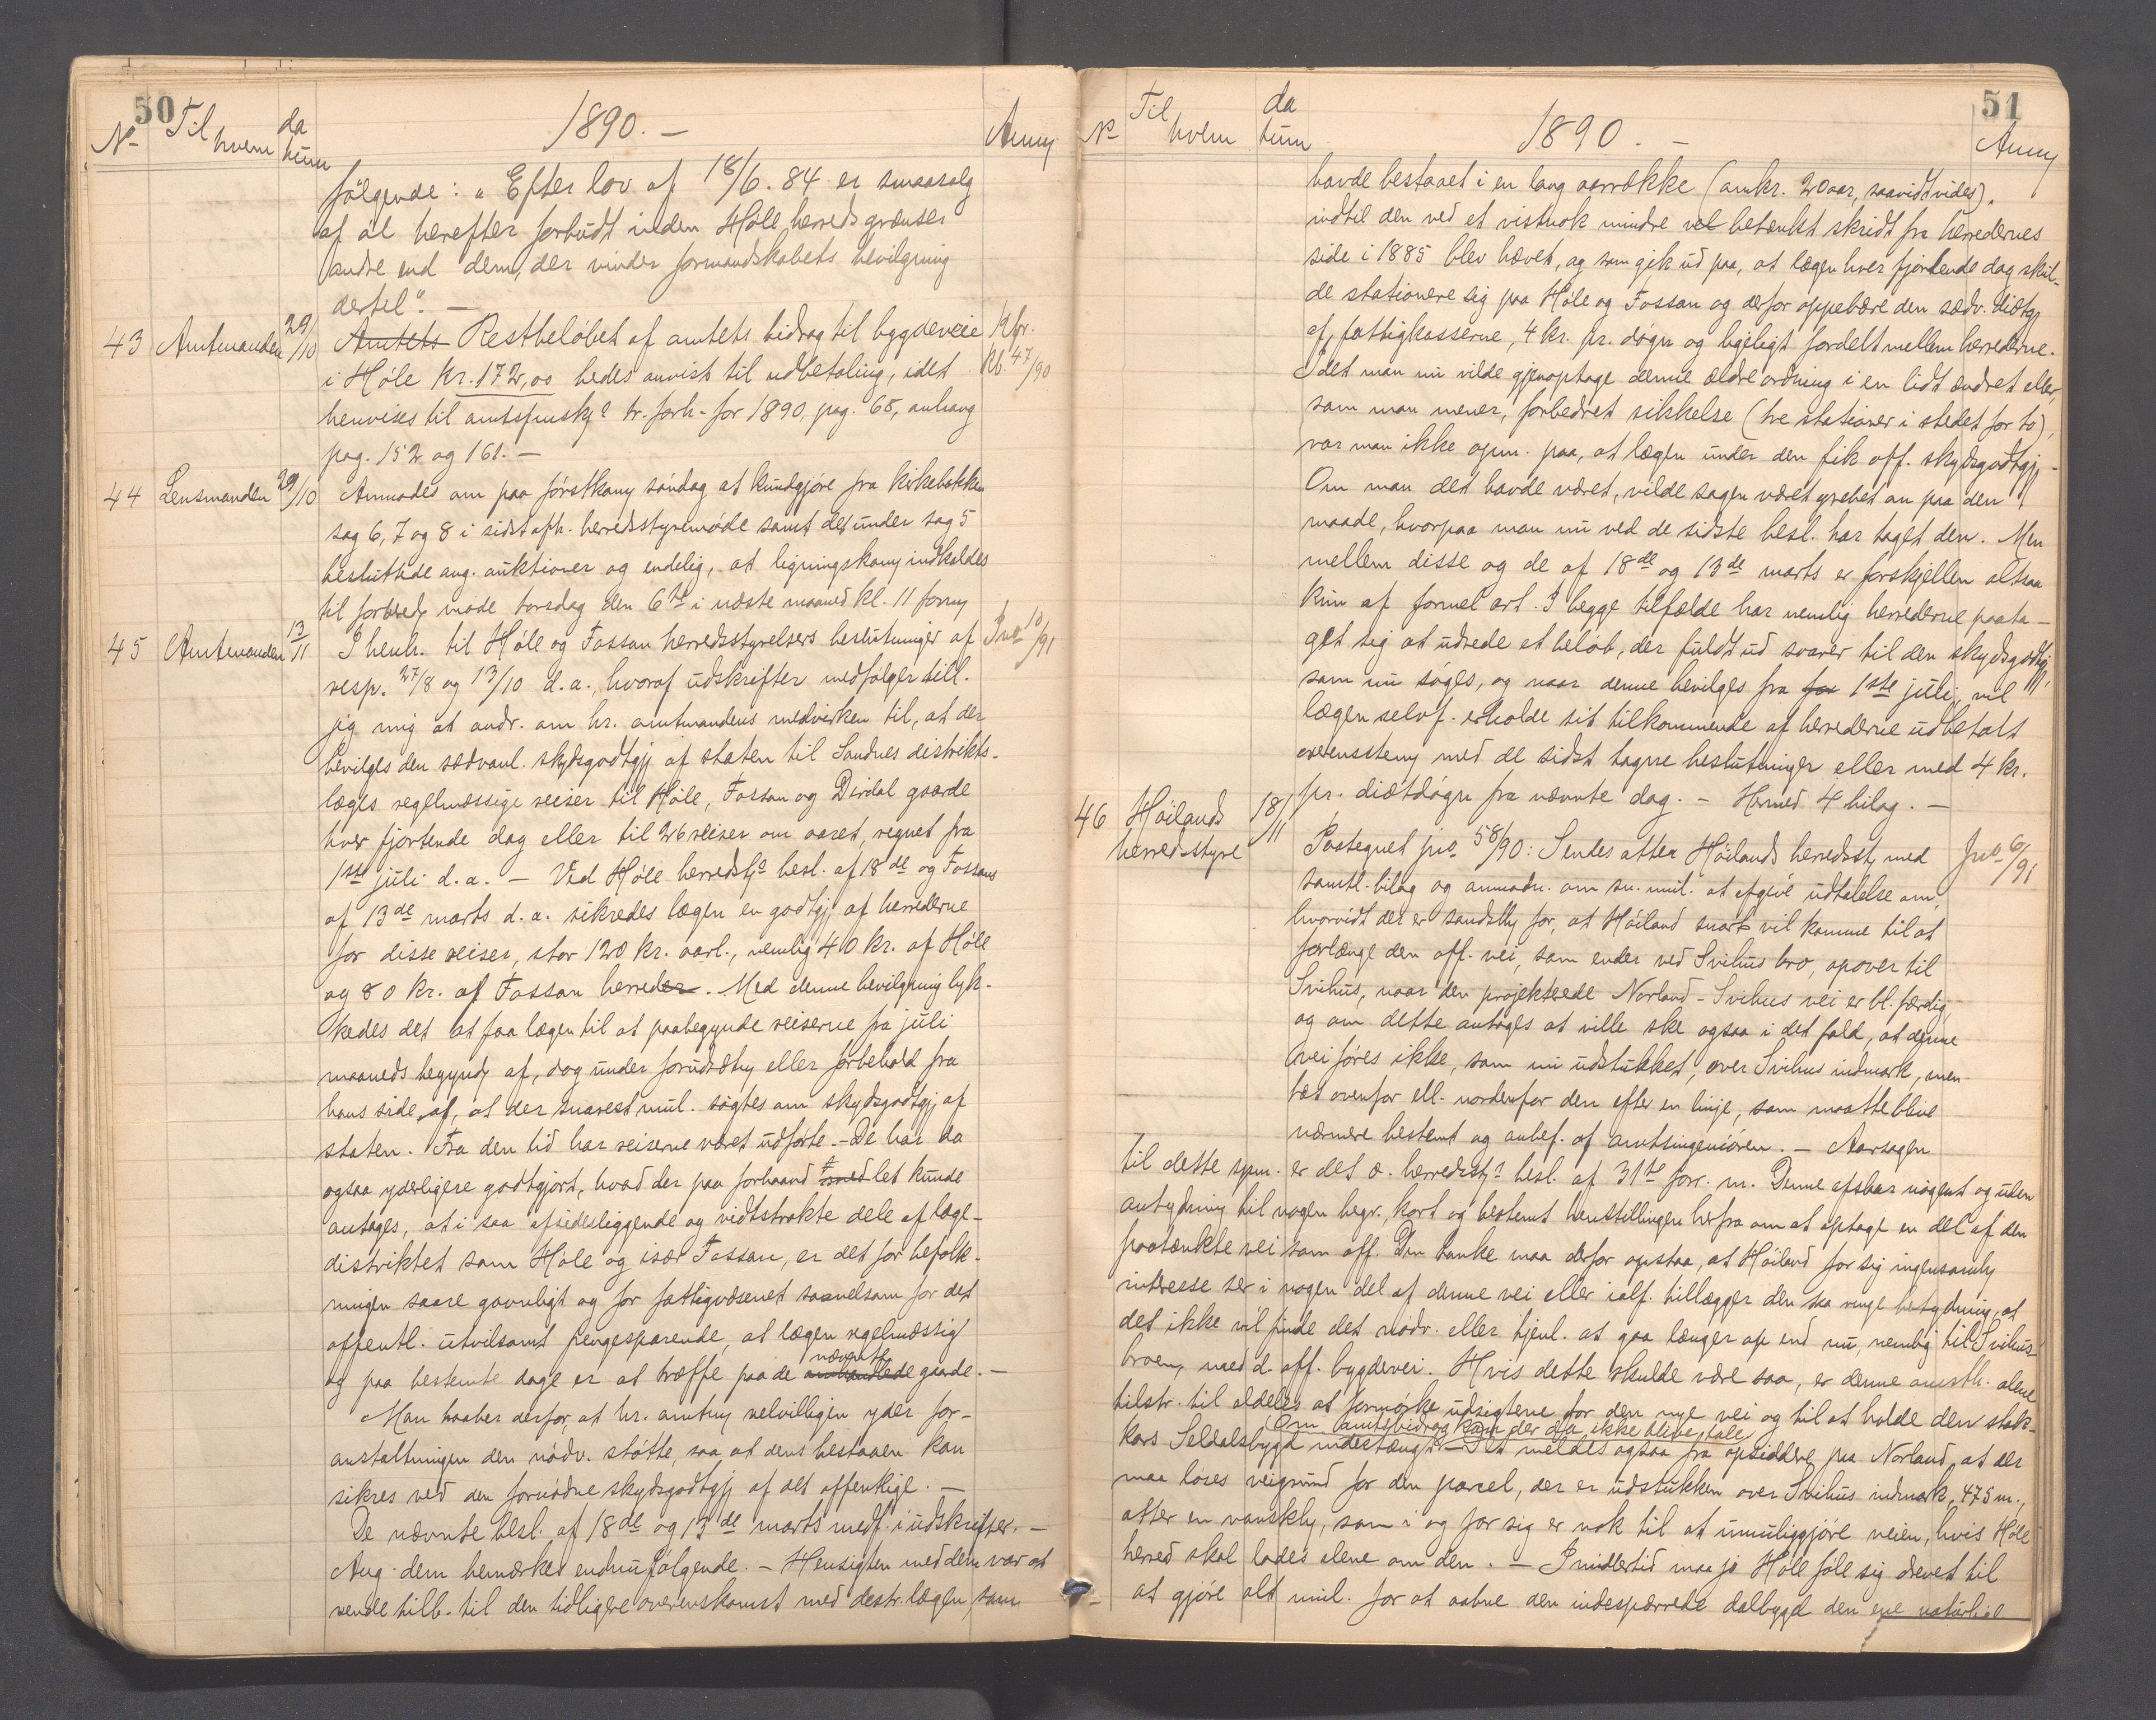 50
No Til hvem da tum 1890. — Anm
følgende: "Efter lov af 18/6. 84 er smaasalg
af øl herefter forbudt inden Høle herredsgrænser
andre end dem, der vinder formandskabets bevilgning
dertil". —
43 Amtmanden 29/10 Amtets Restbeløbet af amtets bidrag til bygdeveie
i Høle kr. 172,00 bedes anvist til udbetaling, idet Kb. 47/90
henvises til amtsfmskps tr. forh. for 1890, pag. 68, anhang
pag. 152 og 161. —
44 Lensmanden 29/10 Anmodes om paa førstkom søndag at kundgjøre fra kirkebakken
sag 6, 7 og 8 i sidst afh. herredsstyremøde samt det under sag 5
besluttede ang. auktioner og endelig, at ligningskom indkaldes
til forbered møde torsdag den 6te i næste maaned kl. 11 form
45 Amtmanden 13/11 I henh. til Høle og Fossan herredsstyrelsers beslutninger af Jno 10/91
resp. 27/8 og 13/10 d. a., hvoraf udskrifter medfølger till.
jeg mig at andr. om hr. amtmandens medvirken til, at der
bevilges den sædvanl. skydsgodtgj af staten til Sandnes distrikts-
læges regelmæssige reiser til Høle, Fossan og Dirdal gaarde
hver fjortende dag eller til 26 reiser om aaret, regnet fra
1ste juli d. a. — Ved Høle herredsts besl. af 18de og Fossans
af 13de marts d. a. sikredes lægen en godtgj. af herrederne
for disse reiser, stor 120 kr. aarl., nemlig 40 kr. af Høle
og 80 kr. af Fossan herreder. Med denne bevilgning lyk-
kedes det at faa lægen til at paabegynde reiserne fra juli
maaneds begynd af, dog under forudsætn eller forbehold fra
hans side af, at der snarest mul. søgtes om skydsgodtgj. af
staten. Fra den tid har reiserne været udførte. — De har da
ogsaa yderligere godtgjort, hvad der paa forhaand let kunde
antages, at i saa afsidesliggende og vidtstrakte dele af læge-
distriktet som Høle og især Fossan, er det for befolk-
ningen saare gavnligt og for fattigvæsenet saavelsom for det
offentl. utvilsomt pengesparende, at lægen regelmæssig
nævnte
og paa bestemte dage er at træffe paa de gaarde. —
Man haaber derfor, at hr. amtm velvilligen yder for-
anstaltningen den nødv. støtte, saa at dens bestaaen kan
sikres ved den fornødne skydsgodtgj af det offentlige. —
De nævnte besl. af 18de og 13de marts medf. i udskrifter. —
Ang. dem bemærkes endnu følgende. — Hensigten med dem var at
vende tilb. til den tidligere overenskomst med distr. lægen, som
51
No Til hvem da tum 1890. — Anm
havde bestaaet i en lang aarrække (omkr. 20 aar, saavidt vides),
indtil den ved et vistnok mindre vel betænkt skridt fra herredernes
side i 1885 blev hævet, og som gik ud paa, at lægen hver fjortende dag skul-
de stationere sig paa Høle og Fossan og derfor oppebære den sædv. diætgj
af fattigkasserne, 4 kr. pr. døgn og ligeligt fordelt mellem herrederne.
Idet man nu vilde gjenoptage denne ældre ordning i en lidt ændret eller,
som man mener, forbedret skikkelse (tre stationer i stedet for to),
var man ikke opm. paa, at lægen under den fik off. skydsgodtgj. —
Om man det havde været, vilde sagen været grebet an paa den
maade, hvorpaa man nu ved de sidste besl. har taget den. Men
mellem disse og de af 18de og 13de marts er forskjellen altsaa
kun af formel art. I begge tilfælde har nemlig herrederne paata-
get sig at udrede et beløb, der fuldt ud svarer til den skydsgodtgj,
som nu søges, og naar denne bevilges fra for 1ste juli, vil
lægen selvf. erholde sit tilkommende af herrederne udbetalt
overensstem med de sidst tagne beslutninger eller med 4 kr.
pr. diætdøgn fra nævnte dag. — Hermed 4 bilag. —
46 Høilands herredsstyre 18/11 Paategnet jno 58/90: Sendes atter Høilands herredsst med Jno 6/91
samtl. bilag og anmodn. om sn. mul. at afgive udtalelse om,
hvorvidt der er sandsly for, at Høiland snart vil komme til at
forlænge den off. vei, som ender ved Svihus bro, opover til
Svihus, naar den projekterede Norland-Svihus vei er bl. færdig,
og om dette antages at ville ske ogsaa i det fald, at denne
vei føres ikke, som nu udstukket, over Svihus indmark, men
tæt ovenfor ell. nordenfor den efter en linje, som maatte blive
nærmere bestemt og anbef. af amtsingeniøren. — Aarsagen
til dette spm. er det o. herredssts besl. af 31te forr. m. Denne afslaar nøgent og uden
antydning til nogen begr., kort og bestemt henstillingen herfra om at optage en del af den
paatænkte vei som off. Den tanke maa derfor opstaa, at Høiland for sig ingensomhelst
interesse ser i nogen del af denne vei eller ialf. tillægger den saa ringe betydning, at
det ikke vil finde det nødv. eller tjenl. at gaa længer op end nu, nemlig til Svihus-
broen, med d. off. bygdevei. Hvis dette skulde være saa, er denne omsth. alene
tilstr. til aldeles at formørke udsigterne for den nye vei og til at holde den stak-
Om amtsbidrag kan der da ikke blive tale
kars Seldalsbygd indestængt. — Det meldes ogsaa fra opsiddere paa Norland, at der
maa løses veigrund for den parcel, der er udstukken over Svihus indmark, 475 m.,
atter en vanskely, som i og for sig er nok til at umuliggjøre veien, hvis Høle
herred skal lades alene om den. — Imidlertid maa jo Høle føle sig drevet til
at gjøre alt mul. for at aabne den indespærrede dalbygd den ene naturlige